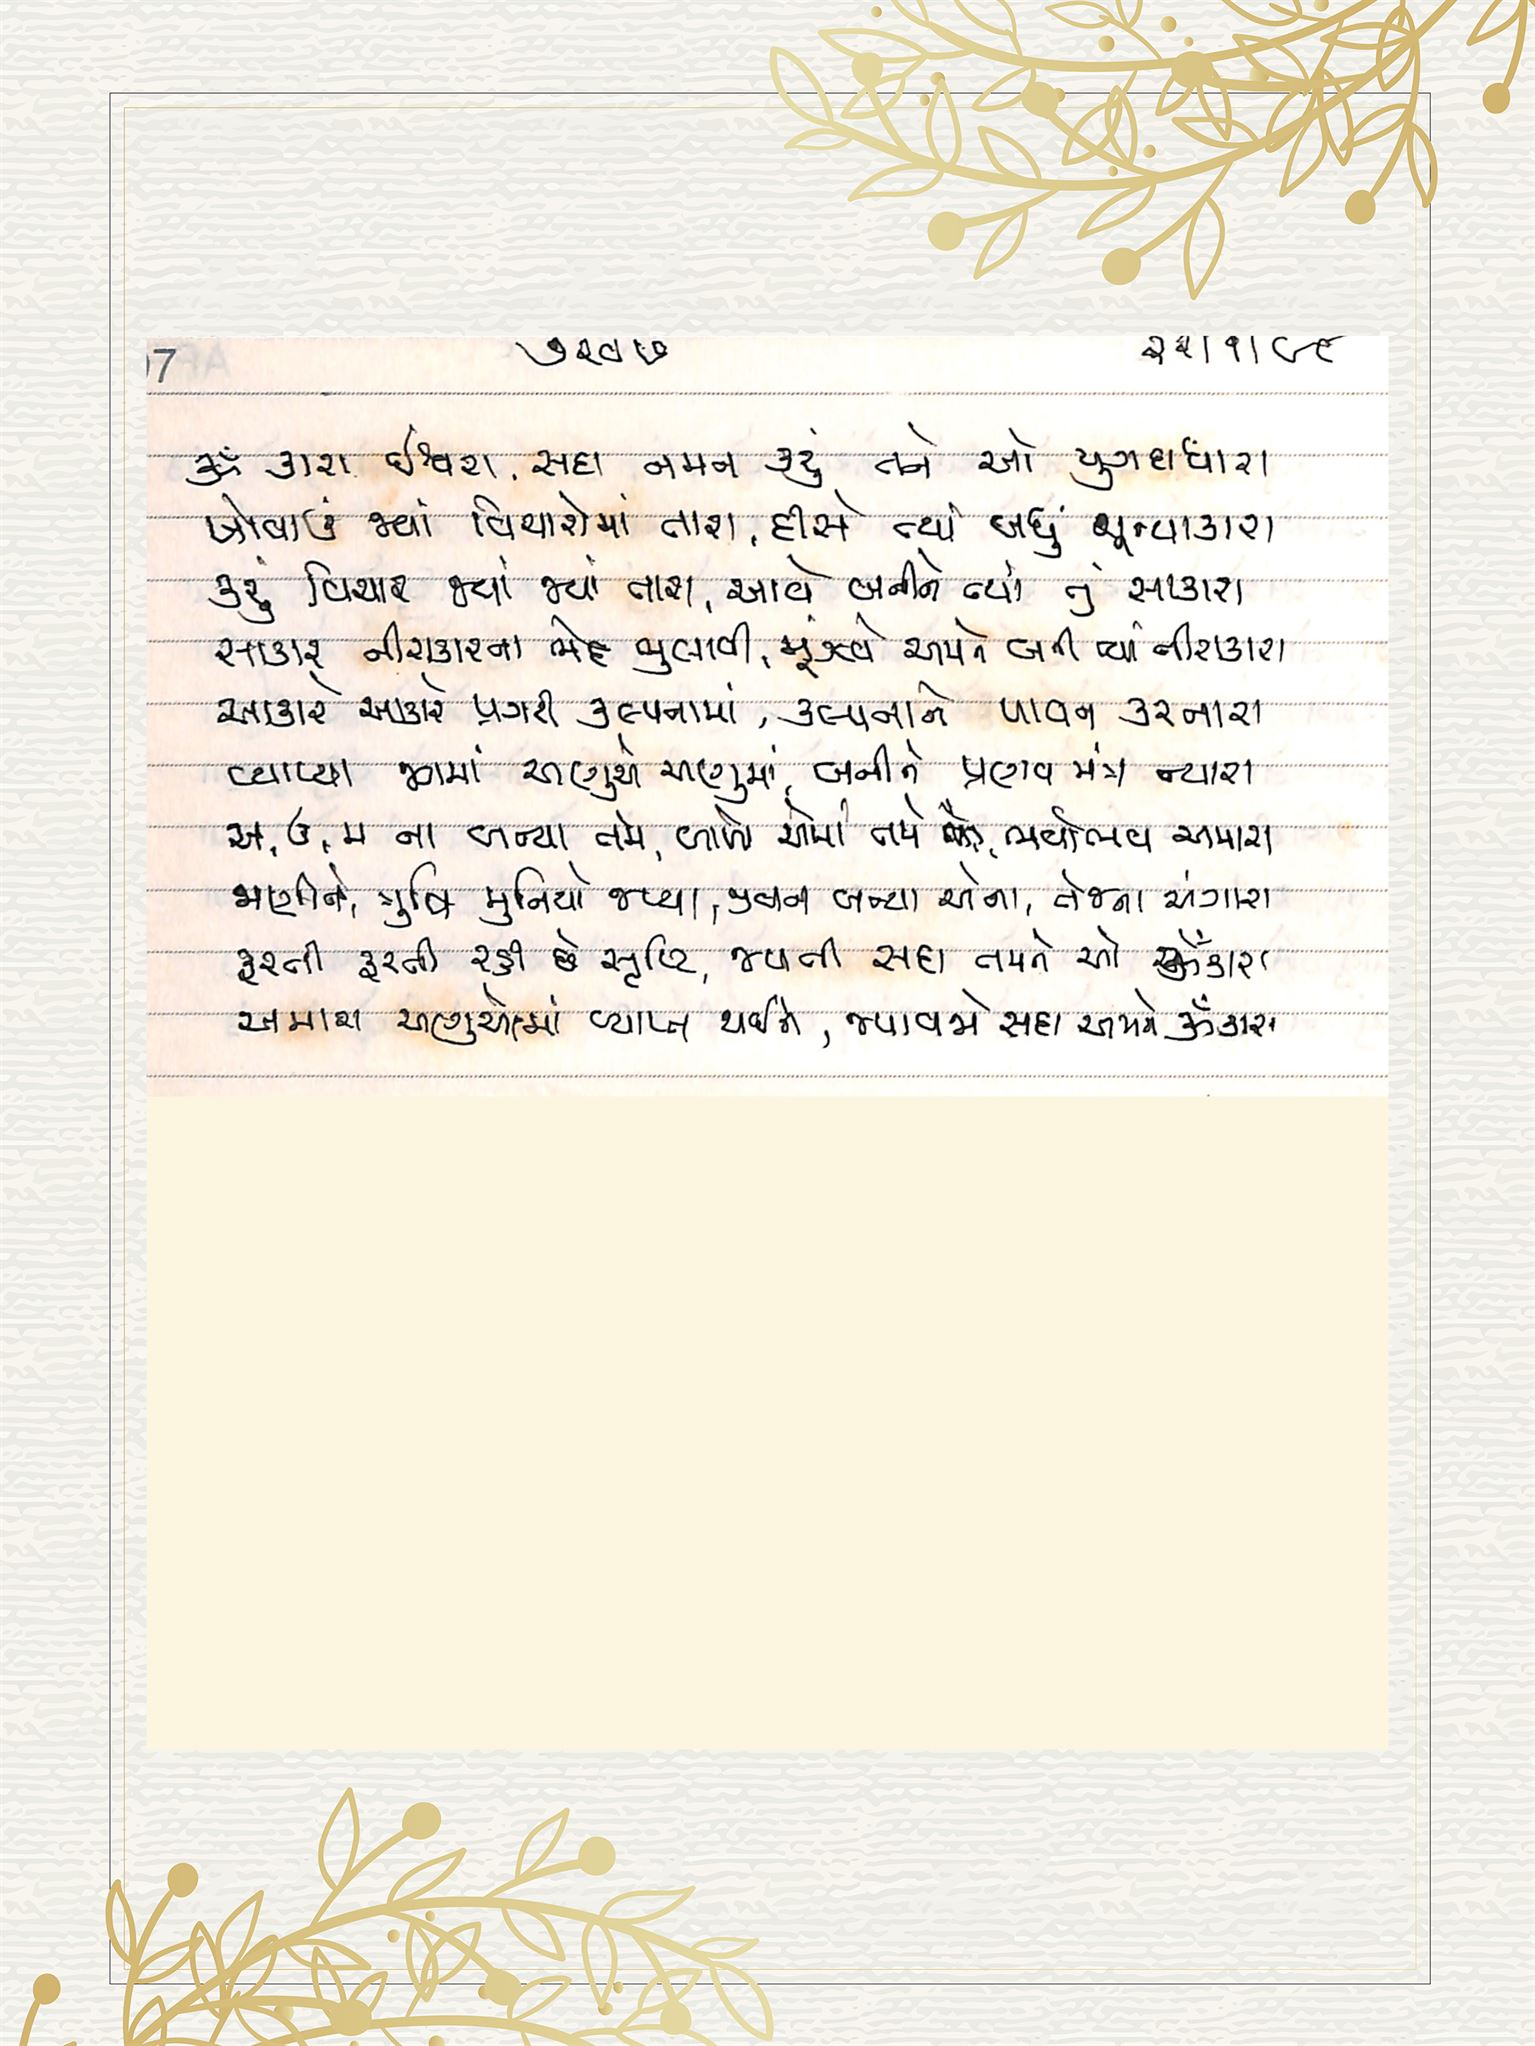 ૭૨૯૭ ૨૨|૧|૮૯
ૐ કારા ઈશ્વરા, સદા નમન કરું તને ઓ યુગદાધારા
ખોવાઉં જ્યાં વિચારોમાં તારા, દીસે ત્યાં બધું શૂન્યાકારા
કરું વિચાર જ્યાં જ્યાં તારા, આવે બનીને ત્યાં તું સાકારા
સાકાર નીરાકારના ભેદ ભુલાવી, મૂંઝવે અમને બની ત્યાં નીરાકારા
આકારે આકારે પ્રગટી કલ્પનામાં, કલ્પનાને પાવન કરનારા
વ્યાપ્યા જગમાં અણુએ અણુમાં, બનીને પ્રણવ મંત્ર ન્યારા
અ, ઉ, મ ના બન્યા તમે, એમાં તમે ભવોભવ અમારા
ઋષિ મુનિયો જપ્યા, બન્યા એના, તેજના અંગારા
ફરતી ફરતી રહી છે સૃષ્ટિ, જપતી સદા તમને ઓ ૐકારા
અમારા અણુએમાં વ્યાપ્ત થઈને, જપાવજો સદા અમને ૐકારા